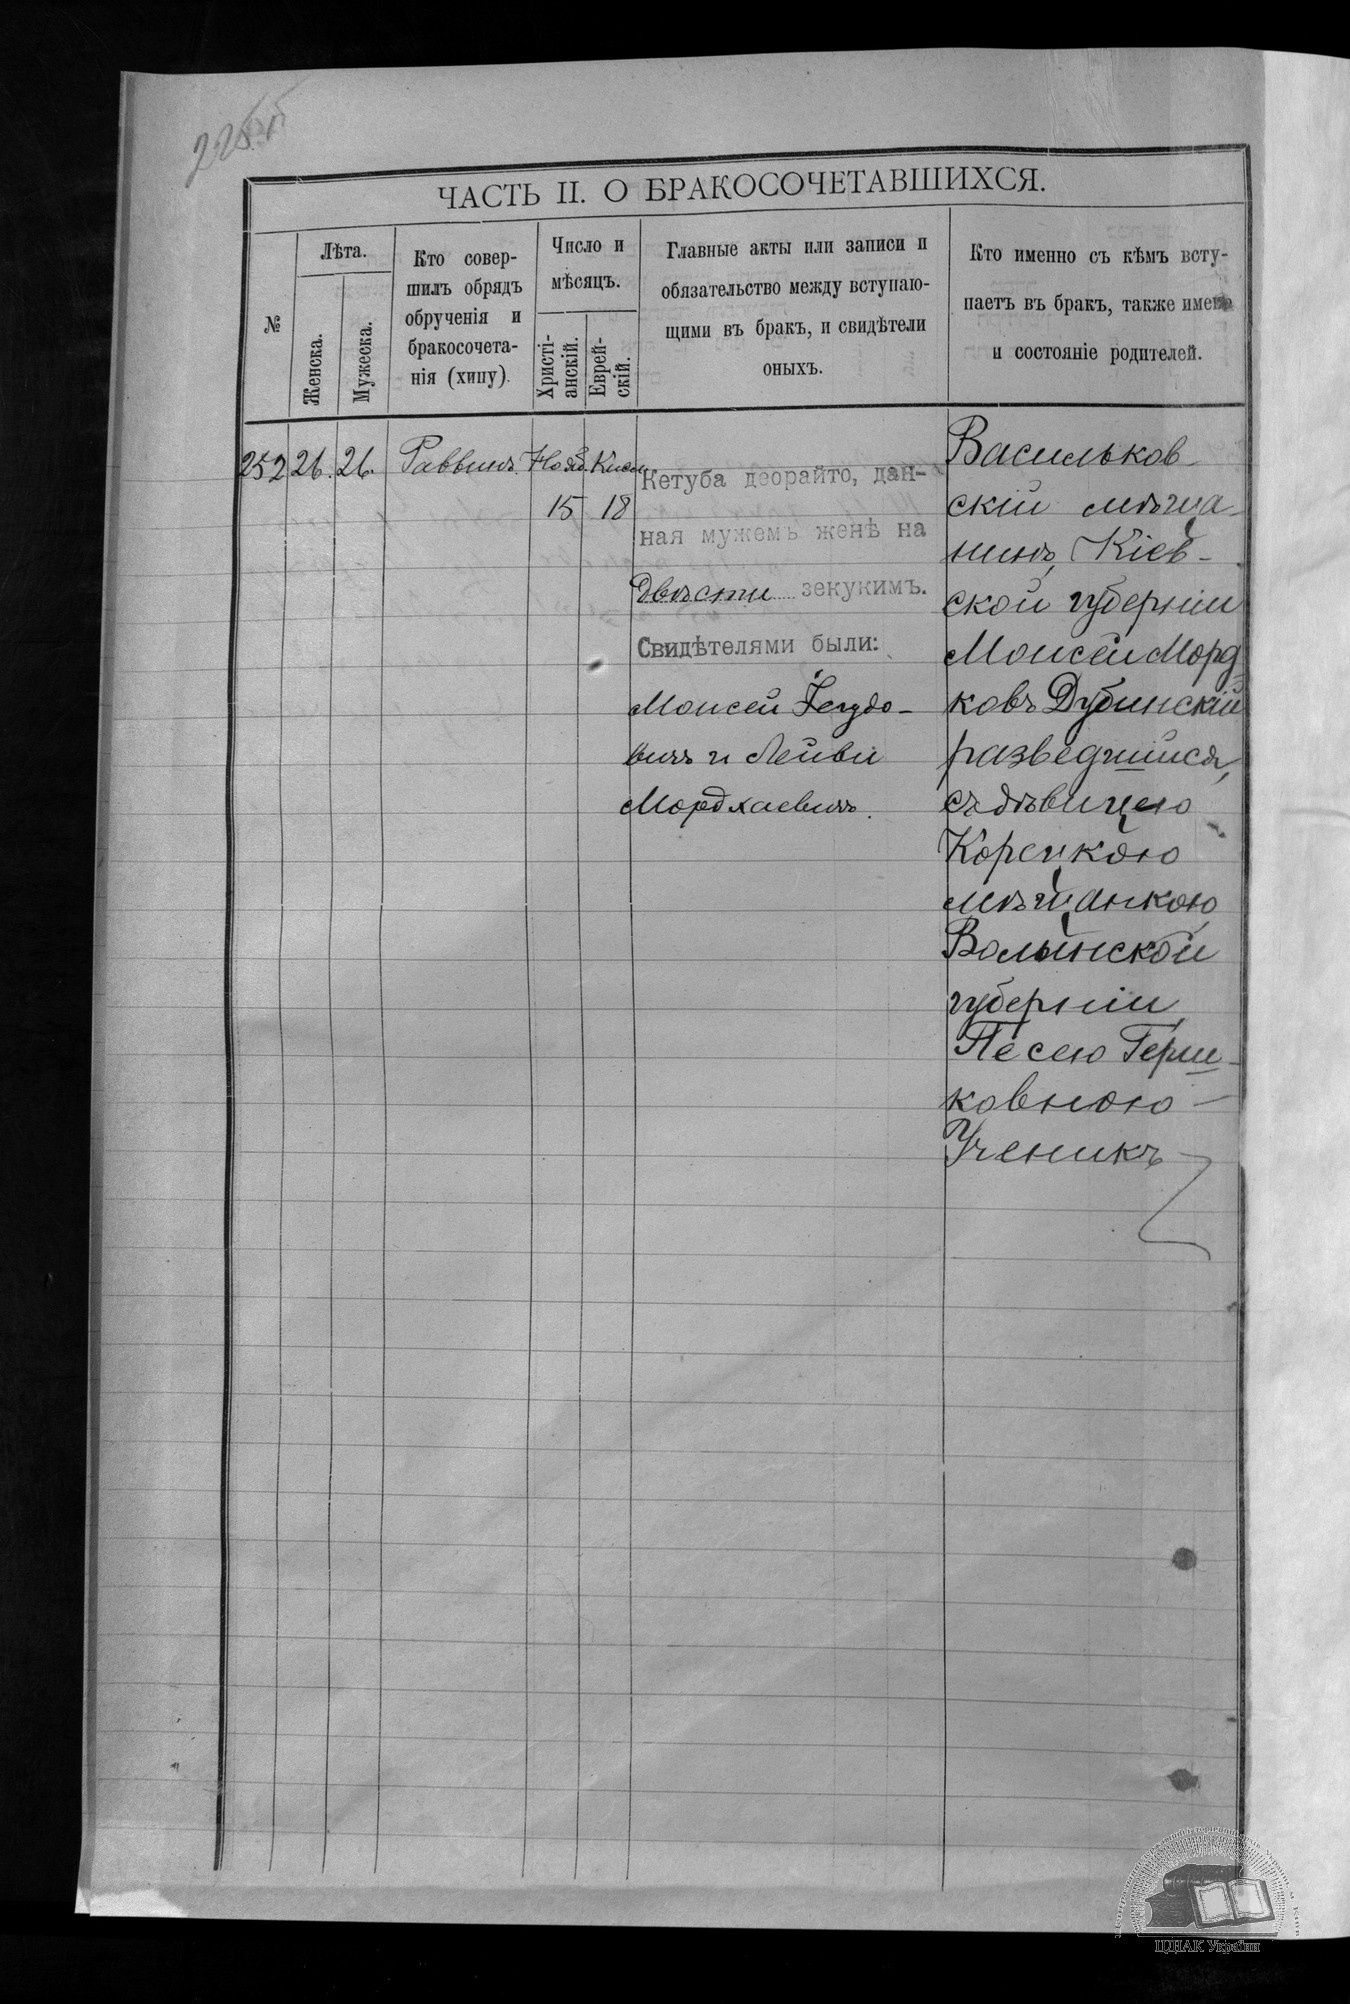 ЧАСТЬ II. О БРАКОСОЧЕТАВШИХСЯ.
№
Лѣта.
Женска.
Мужеска.
Кто совер-
шилъ обрядъ
обрученія и
бракосочета-
нія (хипу).
Число и
мѣсяцъ.
Христі-
анскій.
Еврей-
скій.
Главные акты или записи и
обязательство между вступаю-
щими въ бракъ, и свидѣтели
оныхъ.
Кто именно съ кѣмъ всту-
паетъ въ бракъ, также имена
и состояніе родителей.
252
26.
26.
Раввинъ.
Нояб.
15
Кисл.
18
Кетуба деорайто, дан-
ная мужемъ женѣ на
Двѣсти зекукимъ.
Свидѣтелями были:
Моисей Іегудо-
вичъ и Лейви
Мордхаевичъ.
Васильков-
скій мѣща-
нинъ, Кіев-
ской губерніи
Моисей Морд-
ковъ Дубинскій
разведшійся,
съ дѣвицею
Корецкою
мѣщанкою,
Волынской
губерніи,
Песею Герш-
ковною
Ученикъ
ЦДІАК України